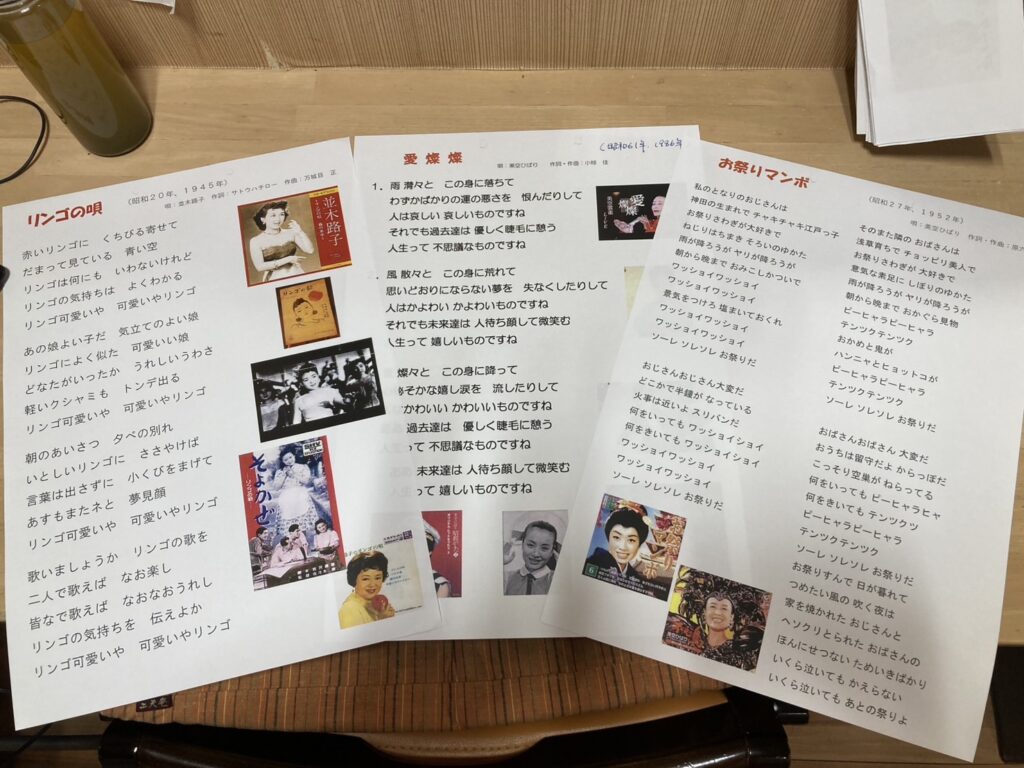 リンゴの唄
（昭和２０年、１９４５年）
唄：並木路子　作詞：サトウハチロー　作曲：万城目　正
赤いリンゴに　くちびる寄せて
だまって見ている　青い空
リンゴは何にも　いわないけれど
リンゴの気持ちは　よくわかる
リンゴ可愛いや　可愛いやリンゴ
あの娘よい子だ　気立てのよい娘
リンゴによく似た　可愛いい娘
どなたがいったか　うれしいうわさ
軽いクシャミも　トンデ出る
リンゴ可愛いや　可愛いやリンゴ
朝のあいさつ　夕べの別れ
いとしいリンゴに　ささやけば
言葉は出さずに　小くびをまげて
あすもまたネと　夢見顔
リンゴ可愛いや　可愛いやリンゴ
歌いましょうか　リンゴの歌を
二人で歌えば　なお楽し
皆なで歌えば　なおなおうれし
リンゴの気持ちを　伝えよか
リンゴ可愛いや　可愛いやリンゴ
並木路子
リンゴの唄
そよかぜ
愛燦燦
（昭和61年．1986年
唄：美空ひばり　作詞・作曲：小椋　佳
１．雨 潸々と　この身に落ちて
わずかばかりの運の悪さを　恨んだりして
人は哀しい 哀しいものですね
それでも過去達は 優しく睫毛に憩う
人生って 不思議なものですね
風 散々と　この身に荒れて
思いどおりにならない夢を　失なくしたりして
人はかよわい かよわいものですね
それでも未来達は 人待ち顔して微笑む
人生って 嬉しいものですね
燦々と　この身に降って
そかな嬉し涙を　流したりして
かわいい かわいいものですね
過去達は　優しく睫毛に憩う
って 不思議なものですね
未来達は 人待ち顔して微笑む
人生って 嬉しいものですね
愛燦燦
お祭りマンボ
（昭和２７年、１９５２年）
唄：美空ひばり　作詞・作曲：原
私のとなりのおじさんは
神田の生まれで チャキチャキ江戸っ子
お祭りさわぎが大好きで
ねじりはちまき そろいのゆかた
雨が降ろうが ヤリが降ろうが
朝から晩まで おみこしかついで
ワッショイワッショイ
ワッショイワッショイ
景気をつけろ 塩まいておくれ
ワッショイワッショイ
ワッショイワッショイ
ソーレ ソレソレ お祭りだ
おじさんおじさん大変だ
どこかで半鐘が なっている
火事は近いよ スリバンだ
何をいっても ワッショイショイ
何をきいても ワッショイショイ
ワッショイワッショイ
ワッショイワッショイ
ソーレ ソレソレ お祭りだ
そのまた隣の おばさんは
浅草育ちで チョッピリ美人で
お祭りさわぎが 大好きで
意気な素足に しぼりのゆかた
雨が降ろうが ヤリが降ろうが
朝から晩まで おかぐら見物
ピーヒャラピーヒャラ
テンツクテンツク
おかめと鬼が
ハンニャとヒョットコが
ピーヒャラピーヒャラ
テンツクテンツク
ソーレ ソレソレ お祭りだ
おばさんおばさん 大変だ
おうちは留守だよ からっぽだ
こっそり空巣が ねらってる
何をいっても ピーヒャラヒャ
何をきいても テンツクツ
ピーヒャラピーヒャラ
テンツクテンツク
ソーレ ソレソレ お祭りだ
お祭りすんで 日が暮れて
つめたい風の 吹く夜は
家を焼かれた おじさんと
ヘソクリとられた おばさんの
ほんにせつない ためいきばかり
いくら泣いても かえらない
いくら泣いても あとの祭りよ